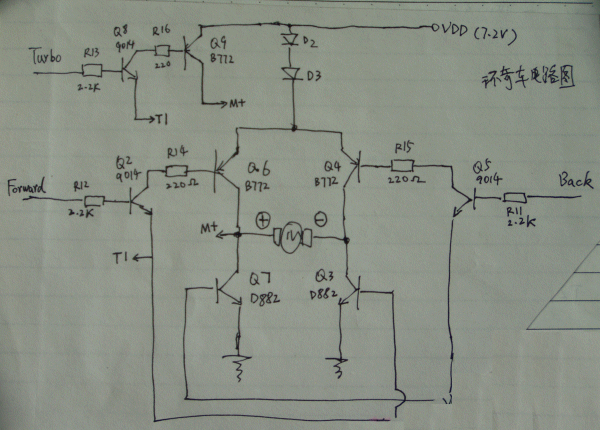 Q8
9014
R16
220
Q9
B772
VDD (7.2V)
D2
D3
Turbo
R13
2.2K
T1
M+
环奇车电路图
Q2
9014
R14
220Ω
Q6
B772
Q4
B772
R15
220Ω
Q5
9014
Forward
R12
2.2K
Back
R11
2.2K
M+
+
-
T1
Q7
D882
Q3
D882